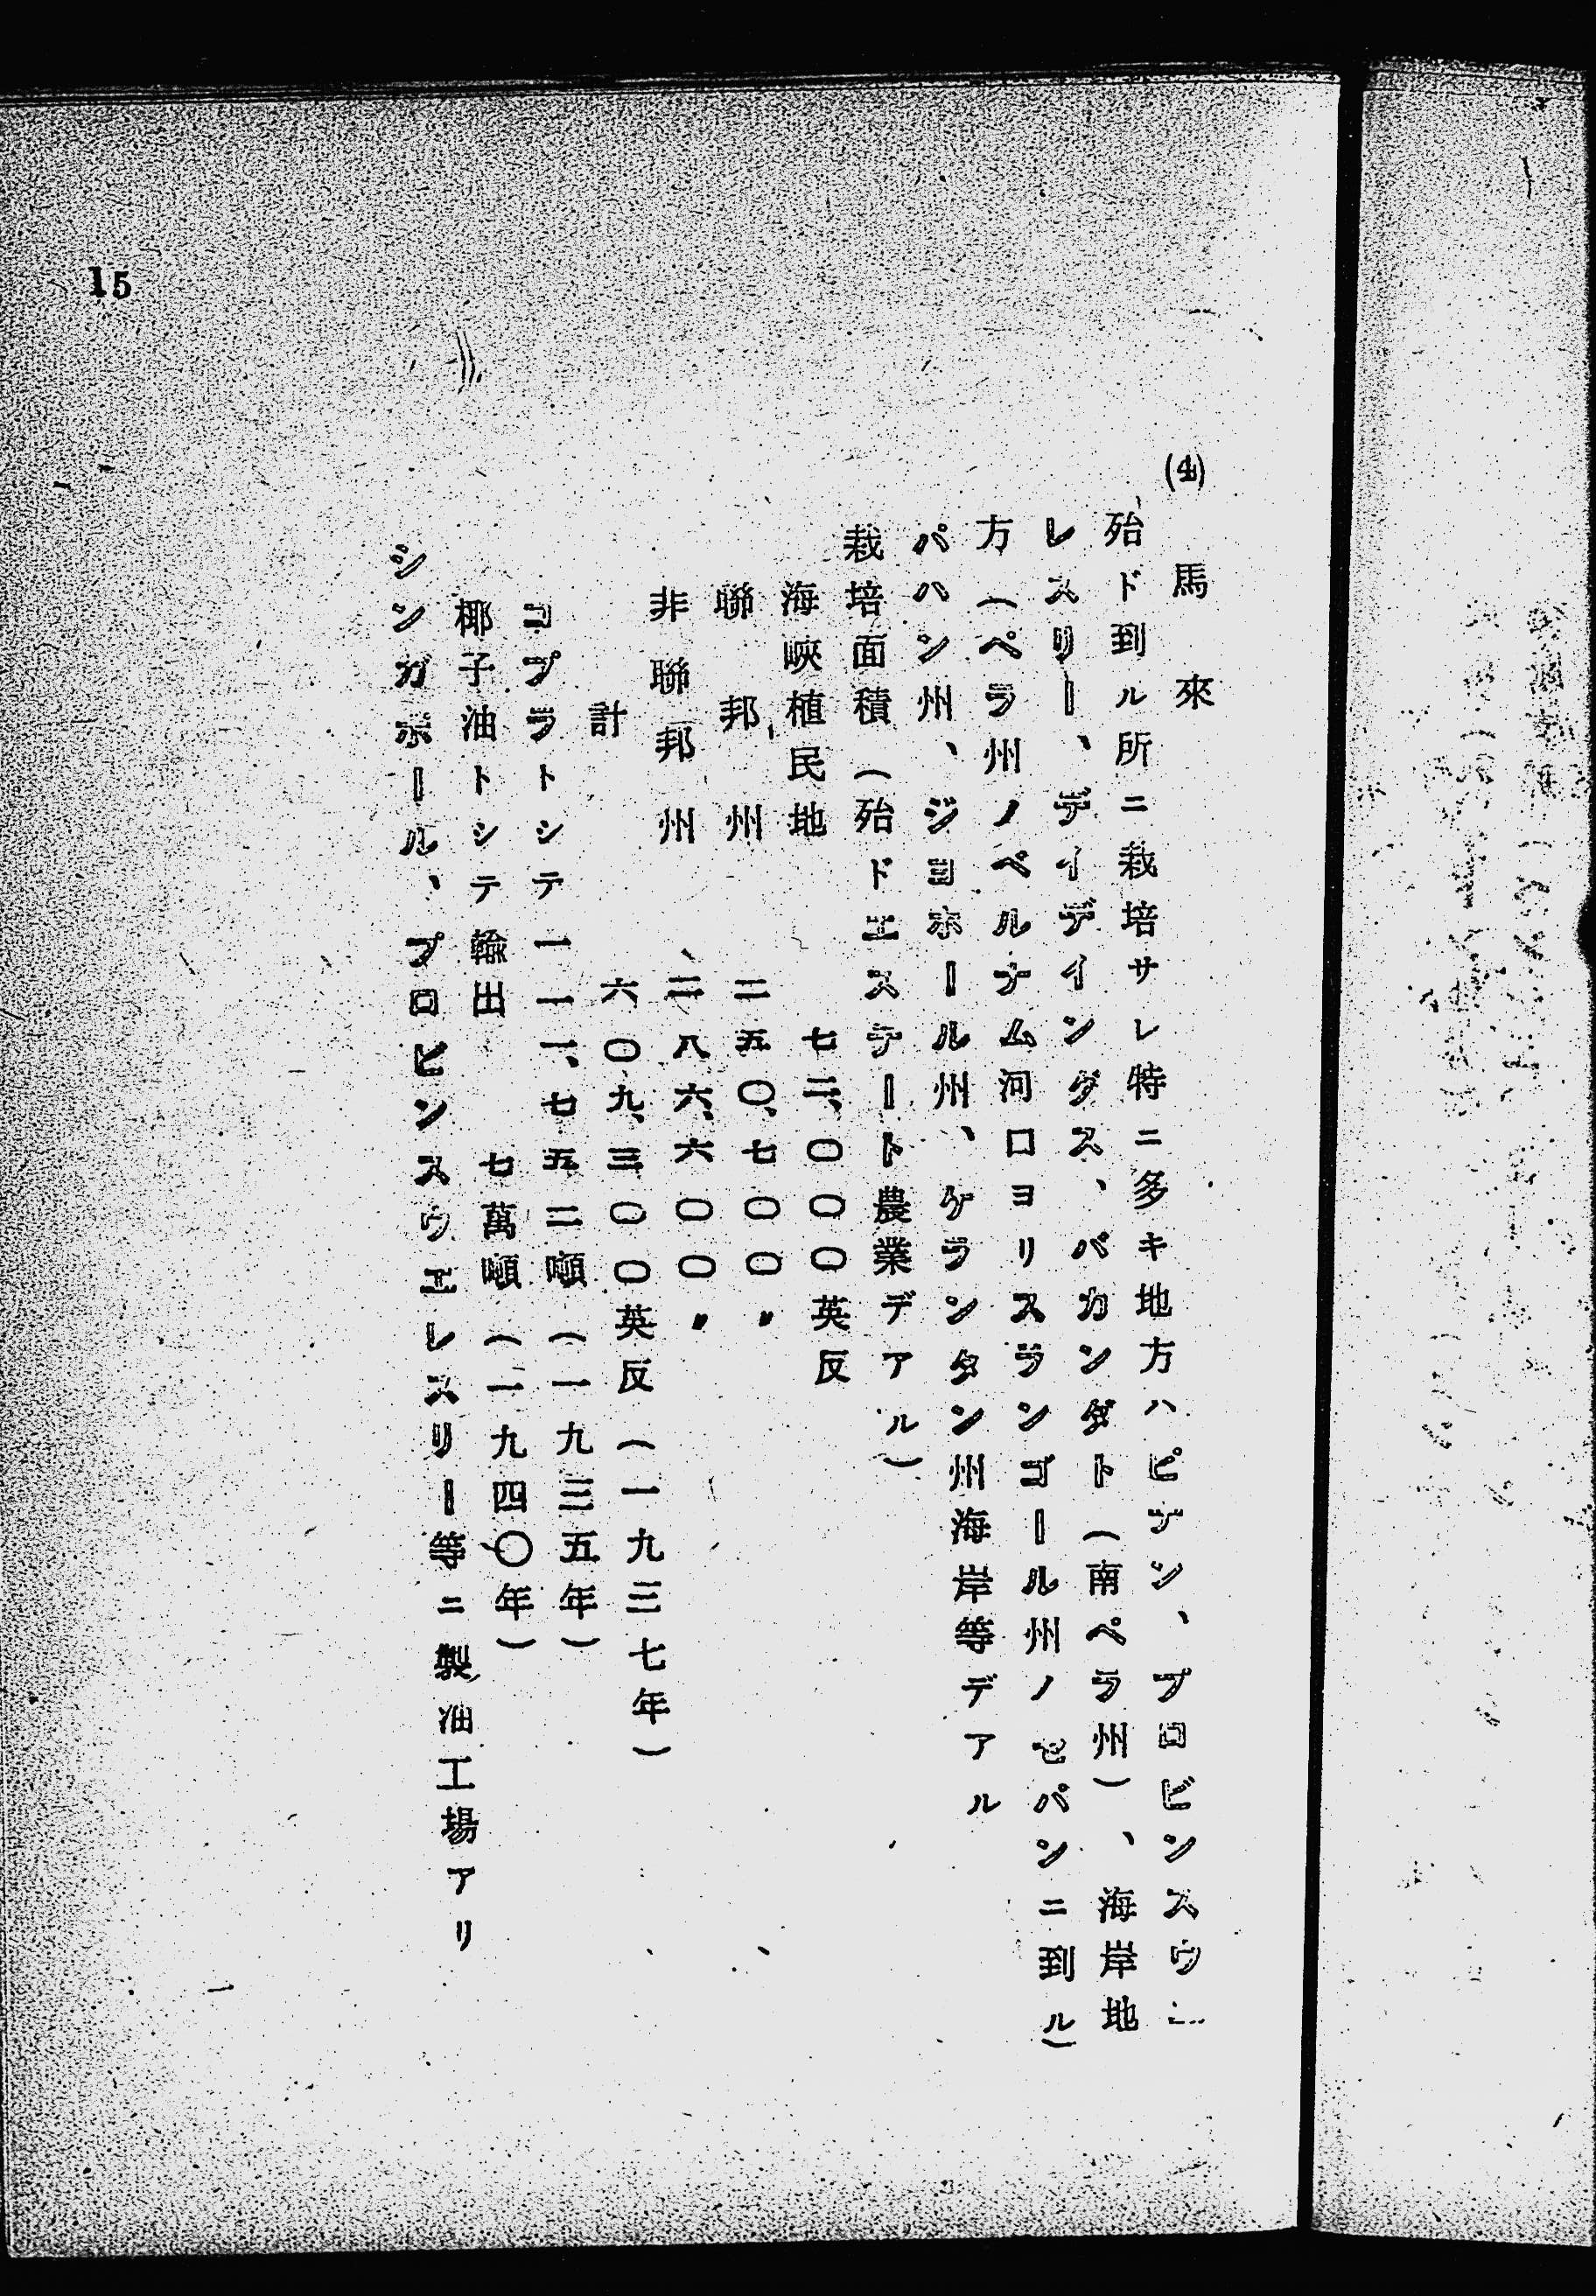 (4) 馬來
殆ド到ル所ニ栽培サレ特ニ多キ地方ハピナン、プロビンスウエ
レスリー、デイデイングス、バカンダト(南ペラ州)、海岸地
方(ペラ州ノペルナム河口ヨリスランゴール州ノセパンニ到ル)
パハン州、ジョホール州、ケランタン州海岸等デアル
栽培面積(殆ドエステート農業デアル)
海峽植民地 七二、〇〇〇英反
聯邦州 二五〇、七〇〇〃
非聯邦州 二八六、六〇〇〃
計 六〇九、三〇〇英反(一九三七年)
コプラトシテ一一一、七五二噸(一九三五年)
椰子油トシテ輸出 七萬噸(一九四〇年)
シンガポール、プロビンスウエレスリー等ニ製油工場アリ
15